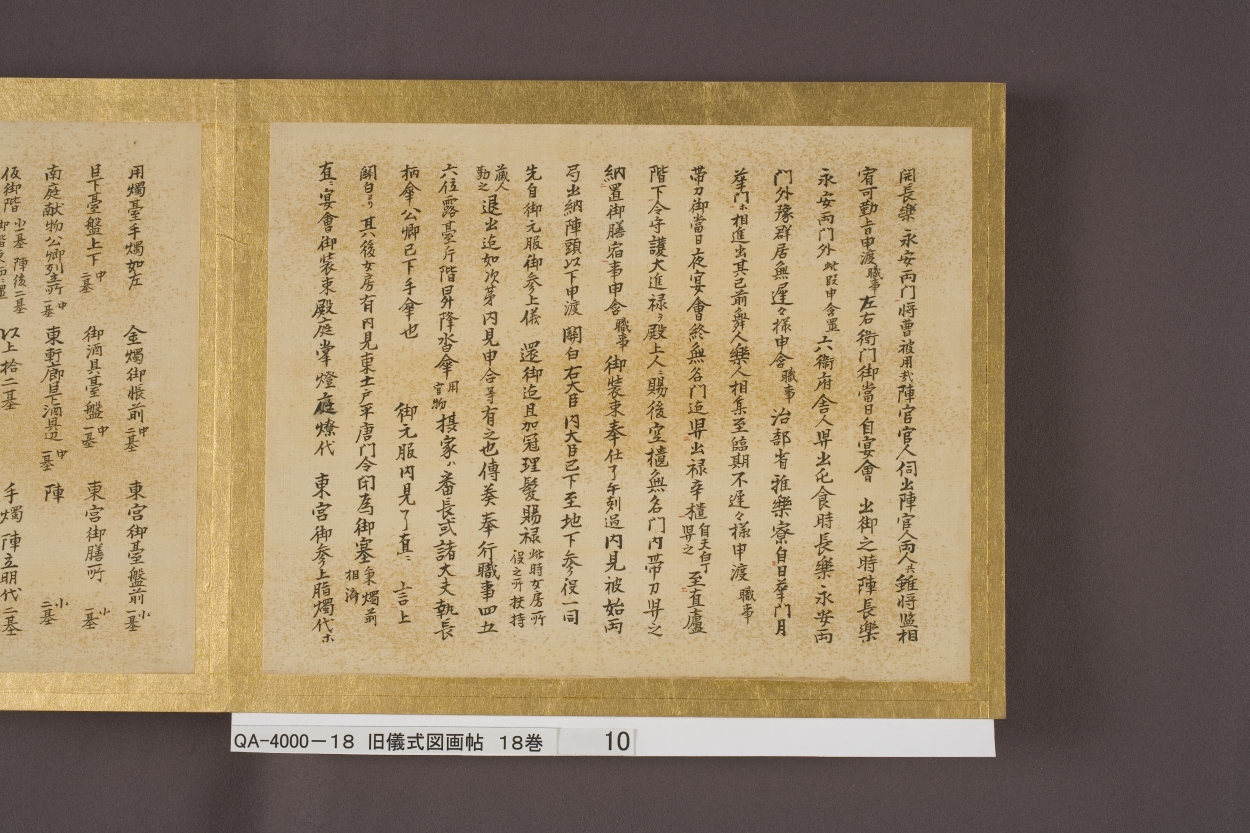 開長樂 永安両門将曹被用代陣官官人伺出陣官人両人共雖将監相
宥可勤旨申渡職事左右衛門御當日自宴會 出御之時陣長樂
永安両門外此段申含置六衛府舎人舁出屯食時長樂永安両
門外豫群居無遅々様申含職事治部省雅樂寮自日華門月
華門ホ相進出其已前舞人樂人相集至臨期不遅々様申渡職事
帯刀御當日夜宴會終無名門迄舁出禄辛櫃自夫白丁舁之至直廬
階下令守護大進禄ヲ殿上人ニ賜後空櫃無名門内帯刀舁之
納置御膳宿事申含職事御装束奉仕了午刻過内見被始両
局出納陣頭以下申渡 關白右大臣内大臣已下至地下参役一同
先自御元服御参上儀 還御迄且加冠理髪賜禄此時女房所役之所扶持
蔵人勤之退出迄如次第内見申合等有之也傳奏奉行職事四五
六位露臺斤階昇降沓傘用官物摂家ハ番長或諸大夫執長
柄傘公卿已下手傘也 御元服内見了直ニ 言上
關白ヨリ其後女房有内見東土戸平唐門令卸為御塞兼燭前相濟
直ニ宴會御装束殿庭掌燈庭燎代 東宮御参上脂燭代ホ
用燭臺手燭如左 金燭御帳前中二基 東宮御臺盤前小一基
臣下臺盤上下中二基 御酒具臺盤中一基 東宮御膳所小一基
南庭献物公卿列立所中一基 東軒廊臣下酒具辺中一基 陣小二基
仮御階 出基 陣後二基 以上拾二基 手燭 陣立明代二基
QA-4000-18 旧儀式図画帖 18巻 10